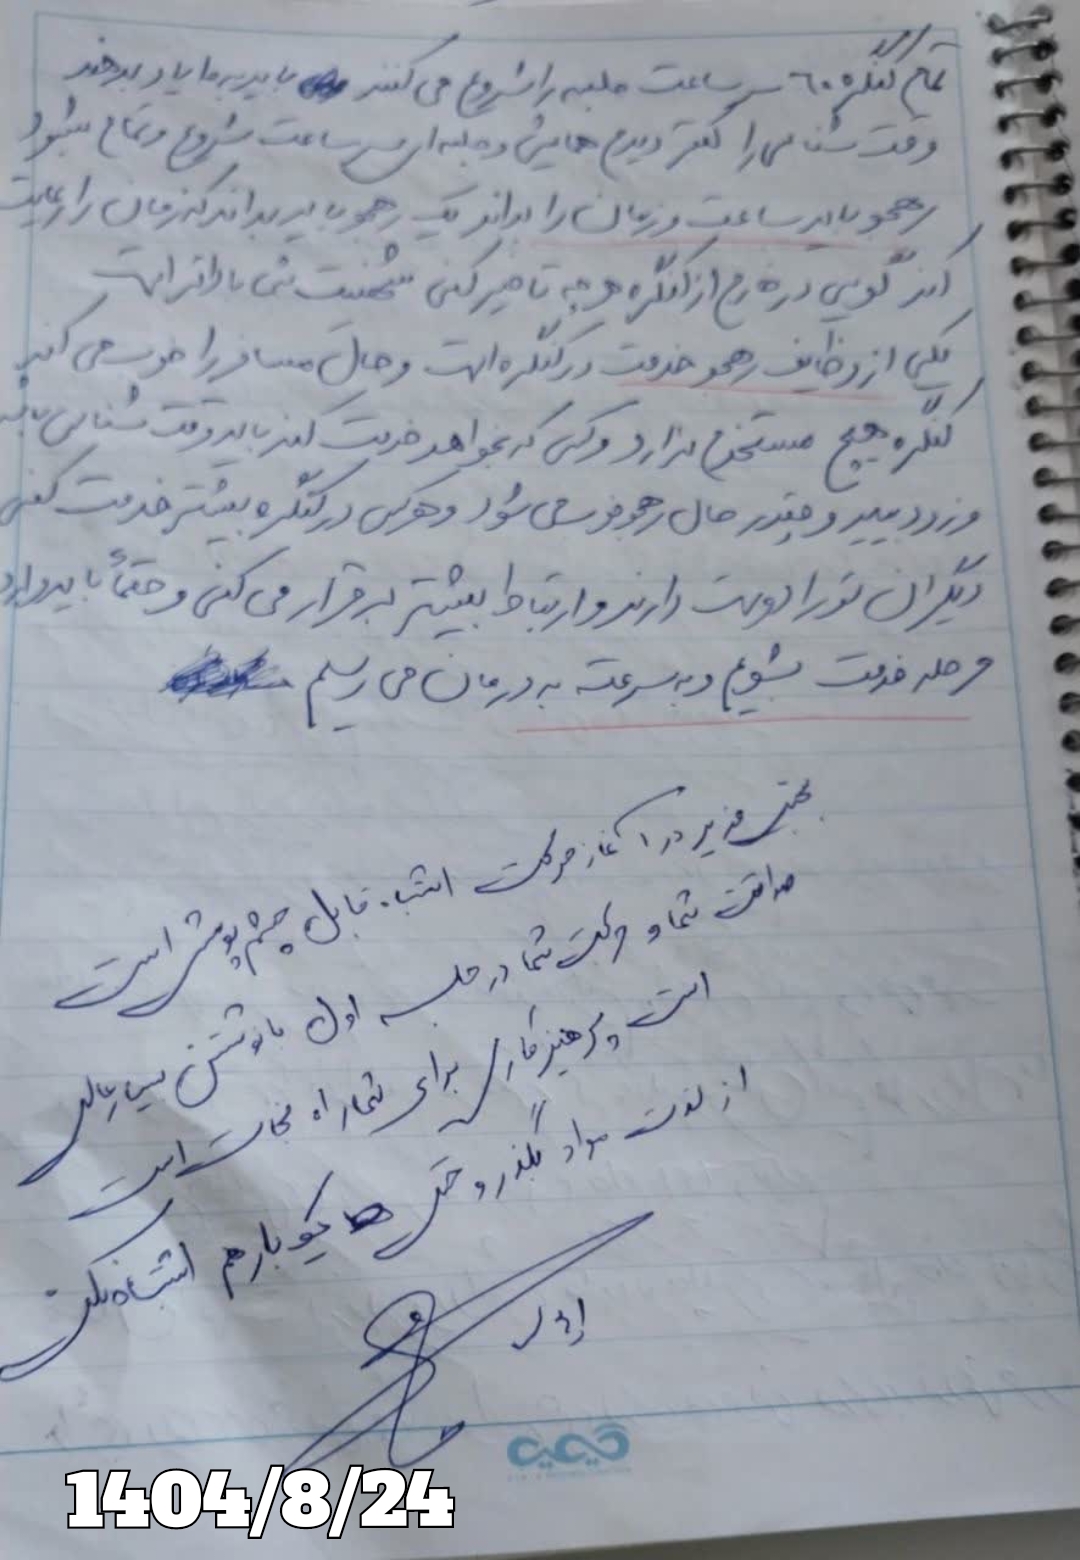 تمام کنگره ۶۰ سر ساعت جلسه را شروع می کنند باید به ما یاد بدهند
وقت شناسی را کمتر دیدم همایش و جلسه ای سر ساعت شروع و تمام بشود
رهجو باید ساعت و زمان را بداند یک رهجو باید بداند که زمان را رعایت
کند گویی در خارج از کنگره هر چه تاخیر کنی شخصیت شی با را
یکی از وظایف رهجو خدمت در کنگره است و حال مسافر را خوب می کند
کنگره هیچ مستخدم ندارد و کسی که بخواهد خدمت کند باید وقت شناس باشد
و زود بیاید و چقدر حال رهجو خوب می شود و هرکس در کنگره بیشتر خدمت کنی
دیگران تو را دوست دارند و ارتباط بیشتر برقرار می کنی و حتماً باید وارد
مرحله خدمت بشویم و به سرعت به درمان می رسیم
مجتبی عزیز در آغاز حرکت اشتباه قابل چشم پوشی است
صداقت شما و حرکت شما در جلسه اول با نوشتن سی دی عالی
است پرهیزکاری برای شما راه نجات است
از لذت مواد بگذر و حتی یکبار هم اشتباه نکن
1404/8/24